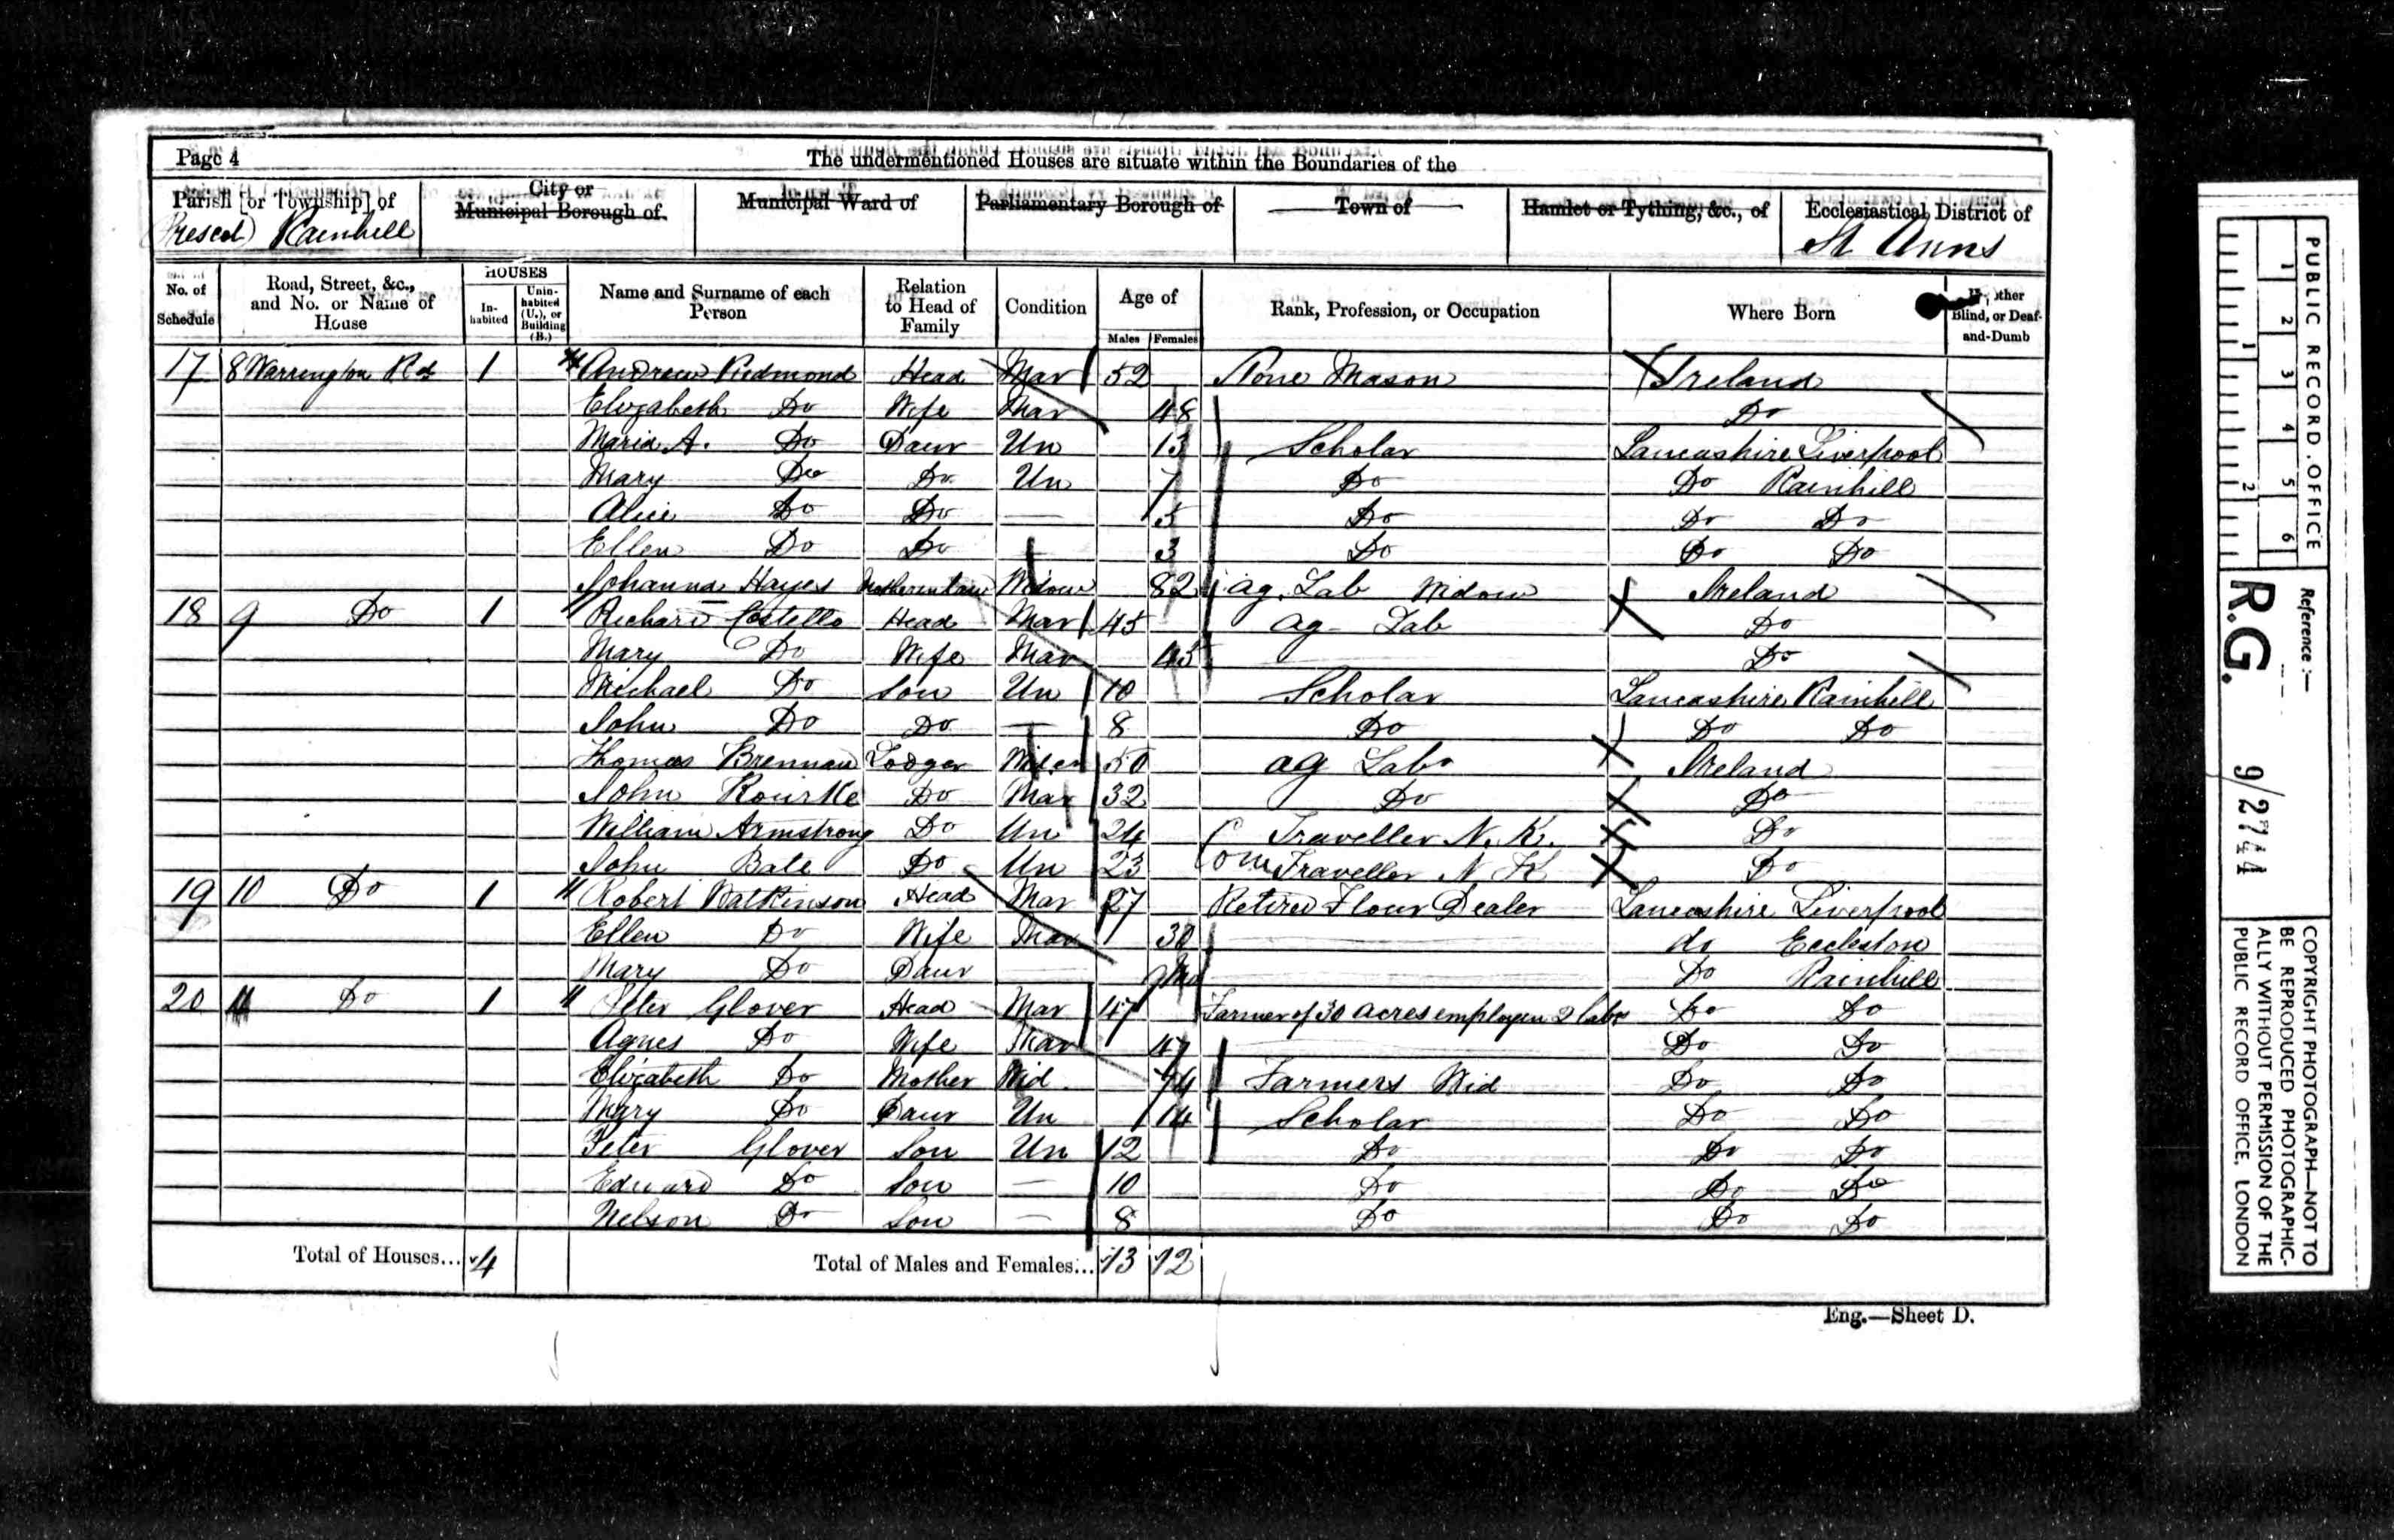 Page 4 The undermentioned Houses are situate within the Boundaries of the
Parish [or Township] of City or Municipal Borough of Municipal Ward of Parliamentary Borough of Town of Hamlet or Tything, &c., of Ecclesiastical District of
Rainhill St Anns
No. of Schedule Road, Street, &c., and No. or Name of House HOUSES In-habited Unin-habited (U.), or Building (B.) Name and Surname of each Person Relation to Head of Family Condition Age of Males Females Rank, Profession, or Occupation Where Born Whether Blind, or Deaf-and-Dumb
17 8 Warrington Rd 1 Andrew Redmond Head Mar 52 Stone Mason Ireland
Elizabeth Do Wife Mar 48 Do
Maria A. Do Daur Un 13 Scholar Lancashire Liverpool
Mary Do Do Un 7 Do Do Rainhill
Alice Do Do — 5 Do Do Do
Ellen Do Do 3 Do Do Do
Johanna Hayes Motherinlaw Widow 82 Ag. Lab Widow Ireland
18 9 Do 1 Richard Costello Head Mar 45 Ag Lab Do
Mary Do Wife Mar 45 Do
Michael Do Son Un 10 Scholar Lancashire Rainhill
John Do Do — 8 Do Do Do
Thomas Brennan Lodger 50 Ag Lab Ireland
John Rourke Do Mar 32 Do Do
William Armstrong Do Un 24 Traveller N. K. Do
John Bale Do Un 23 Com Traveller N K Do
19 10 Do 1 Robert Watkinson Head Mar 27 Retired Flour Dealer Lancashire Liverpool
Ellen Do Wife Mar 30 do Eccleston
Mary Do Daur 9 Mo Do Rainhill
20 11 Do 1 Peter Glover Head Mar 47 Farmer of 30 acres 2 labs Do Do
Agnes Do Wife Mar 47 Do Do
Elizabeth Do Mother Wid 74 Farmers Wid Do Do
Mary Do Daur Un 14 Scholar Do Do
Peter Glover Son Un 12 Do Do Do
Edward Do Son — 10 Do Do Do
Nelson Do Son — 8 Do Do Do
Total of Houses... 4 Total of Males and Females... 13 12
Eng.—Sheet D.
PUBLIC RECORD OFFICE
1 2 3 4 5 6
1 2
Reference :—
R.G. 9/2744
COPYRIGHT PHOTOGRAPH—NOT TO
BE REPRODUCED PHOTOGRAPHIC-
ALLY WITHOUT PERMISSION OF THE
PUBLIC RECORD OFFICE, LONDON